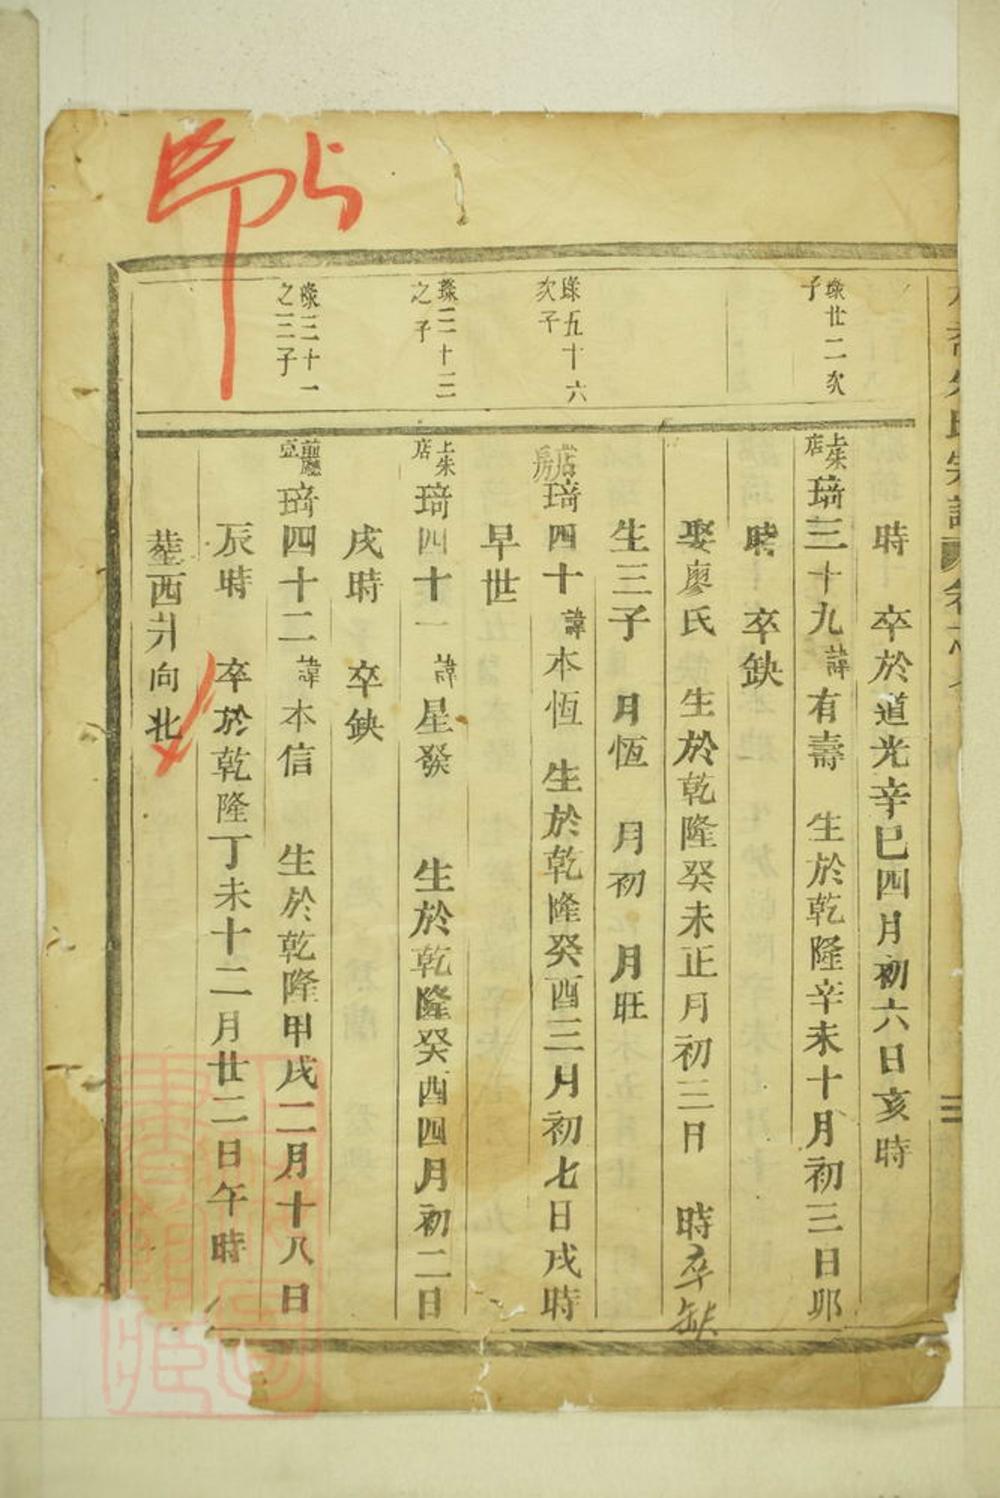 時 卒於道光辛巳四月初六日亥時
瑔廿二次
子
上朱
店
琦三十九諱有壽 生於乾隆辛未十月初三日卯
時 卒缺
娶廖氏 生於乾隆癸未正月初三日 時卒缺
生三子 月恆 月初 月旺
瑔五十六
次子
店
房
琦四十諱本恆 生於乾隆癸酉三月初七日戌時
早世
瑔三十三
之子
上朱
店
琦四十一諱星發 生於乾隆癸酉四月初二日
戌時 卒缺
瑔三十一
之三子
前廳
琦四十二諱本信 生於乾隆甲戌二月十八日
辰時 卒於乾隆丁未十二月廿二日午時
塟西爿向北